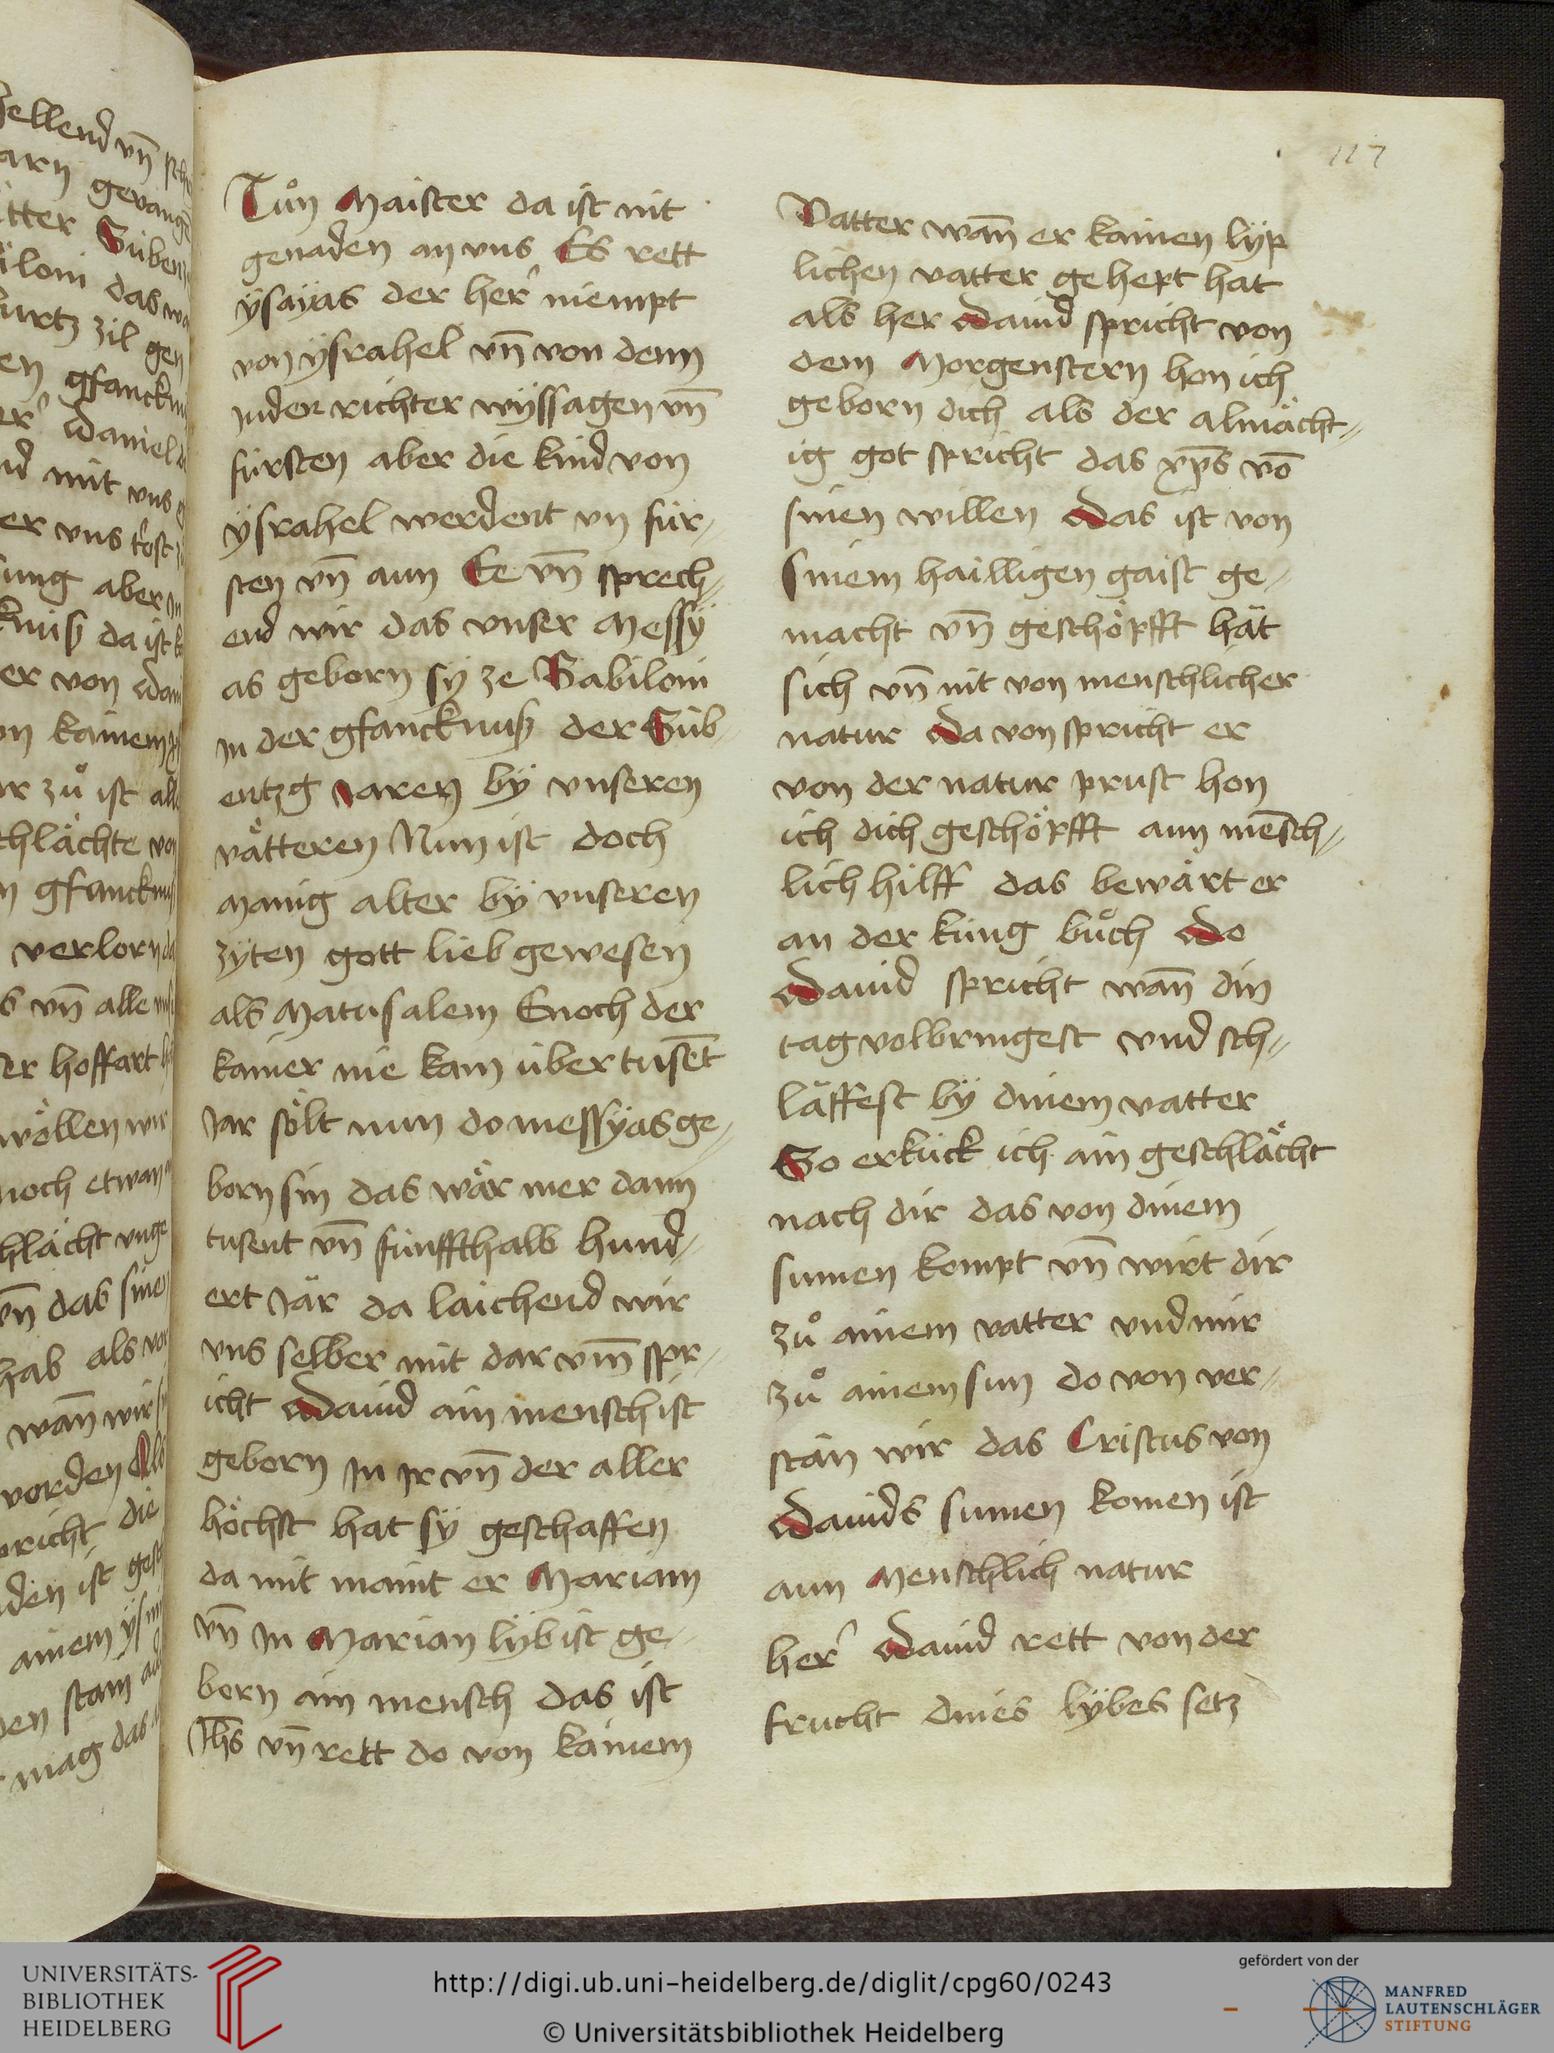 Tuͦn Maister da ist nit
genaden an vns Es rett
ÿsaÿas der her niempt
von ÿsrahel vn̄ von denn
Juden richter wÿssagen vn̄
fürsten aber die kind von
ÿsrahel werdent vn für-
sten vn̄ aun Ee vn̄ sprech-
end wir das vnser Messÿ
as geborn sÿ ze Babiloni
In der gfancknuß der Sib-
entzg Jaren bÿ vnseren
vätteren Nun ist doch
Manig alter bÿ vnseren
zÿten gott lieb gewesen
als Matusalem Enoch der
kainer nie kam über tusēt
Jar sölt nun do messÿas ge-
born sin das wär mer dann
tusent vn̄ fünffthalb hund-
ert Jär da laichend wir
vns selber mit dar vm̄ spr-
icht Dauid ain mensch ist
geborn In Ir vn̄ der aller
höchst hat sÿ geschaffen
da mit maint er Mariam
vn̄ In Marian lÿb ist ge-
born ain mensch das ist
Jhs vn̄ rett do von kainem
127
Vatter wān er kainen lÿp
lichen vatter gehept hat
als her Dauid spricht von
dem Morgenstern hon ich
geborn dich als der almächt-
ig got spricht das xp̄s vō
sinen willen Das ist von
sinem hailligen gaist ge-
macht vn̄ geschöpfft hät
sich vn̄ nit von menschlicher
natur Da von spricht er
von der natur prust hon
ich dich geschöpfft aun mēsch-
lich hilff das bewärt er
an der küng buͦch Do
Dauid spricht wān din
tag volbringest vnd sch-
läffest bÿ dinem vatter
So erkück ich ain geschlächt
nach dir das von dinem
sumen kompt vn̄ wirt dir
zuͦ ainem vatter vnd mir
zuͦ ainem sun do von ver-
stän wir das Cristus von
Dauids sumen komen ist
aun Menschlich natur
her Dauid rett von der
frucht dines lÿbes setz
UNIVERSITÄTS-
BIBLIOTHEK
HEIDELBERG
http://digi.ub.uni-heidelberg.de/diglit/cpg60/0243
© Universitätsbibliothek Heidelberg
gefördert von der
MANFRED
LAUTENSCHLÄGER
STIFTUNG